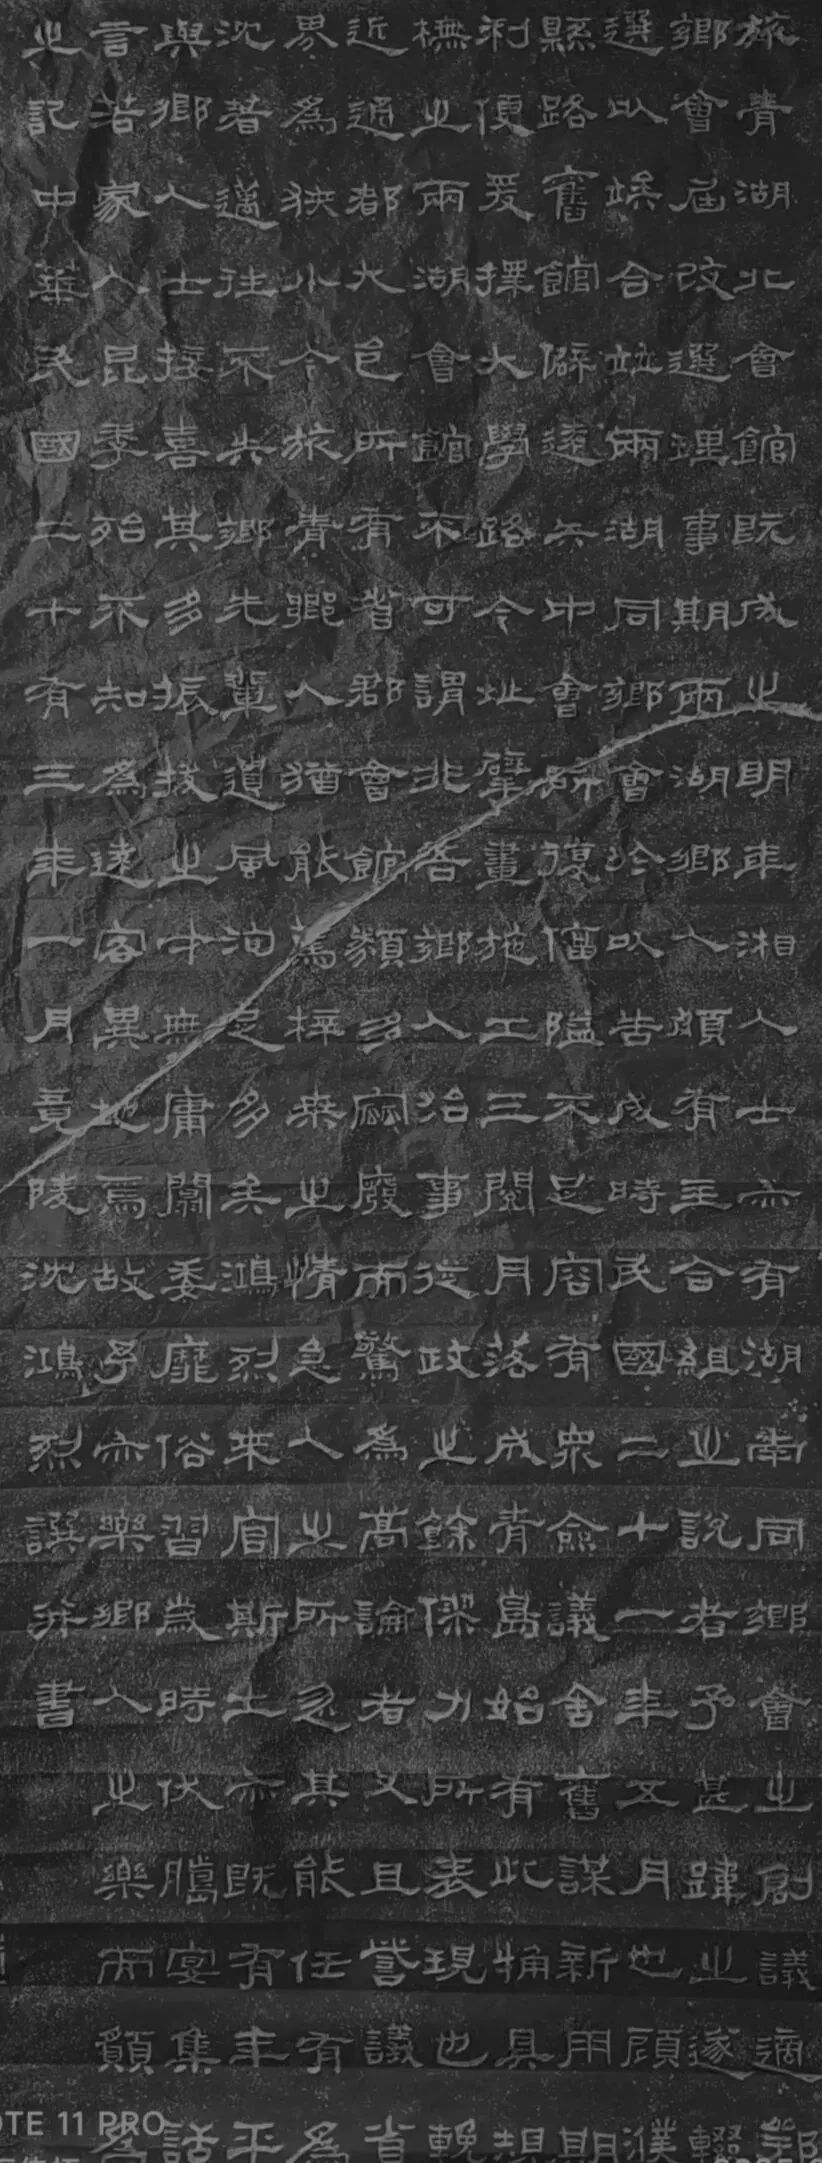 旅青湖北會館既成之明年湘人士亦有湖南同鄉會之創議適鄂
鄉會屆改選理事期兩湖鄉人頗有主合組之說者予甚韙之遂輟
選以竢合竝兩湖同鄉會於以告成時民國二十一年五月也顧濮
縣路舊館僻遠中會所復偪隘不足容有眾僉議舍舊謀新用期
利便爰擇大學路今址擘畫施工三閱月落成青島始有此觕具規
橅之兩湖會館不可謂非吾鄉人治事從政之餘傑力所表現也輓
近通都大邑所有省郡會館類多窳廢而驚為高論者又且訾議省
界為狹小今旅青鄉人猶能篤梓桒之情急人之所忽其能任有為
沈著邁往不失鄉先輩遺風洵足多矣鴻烈來官斯土亦既有年平
與鄉人士接喜其多振拔之才無庸闒委靡俗習歲時伏臘宴集話
言若家人昆季殆不知為遠客異地焉故予亦樂鄉人之樂而額為
之記中華民國二十有三年一月竟陵沈鴻烈譔并書
OTE 11 PRO